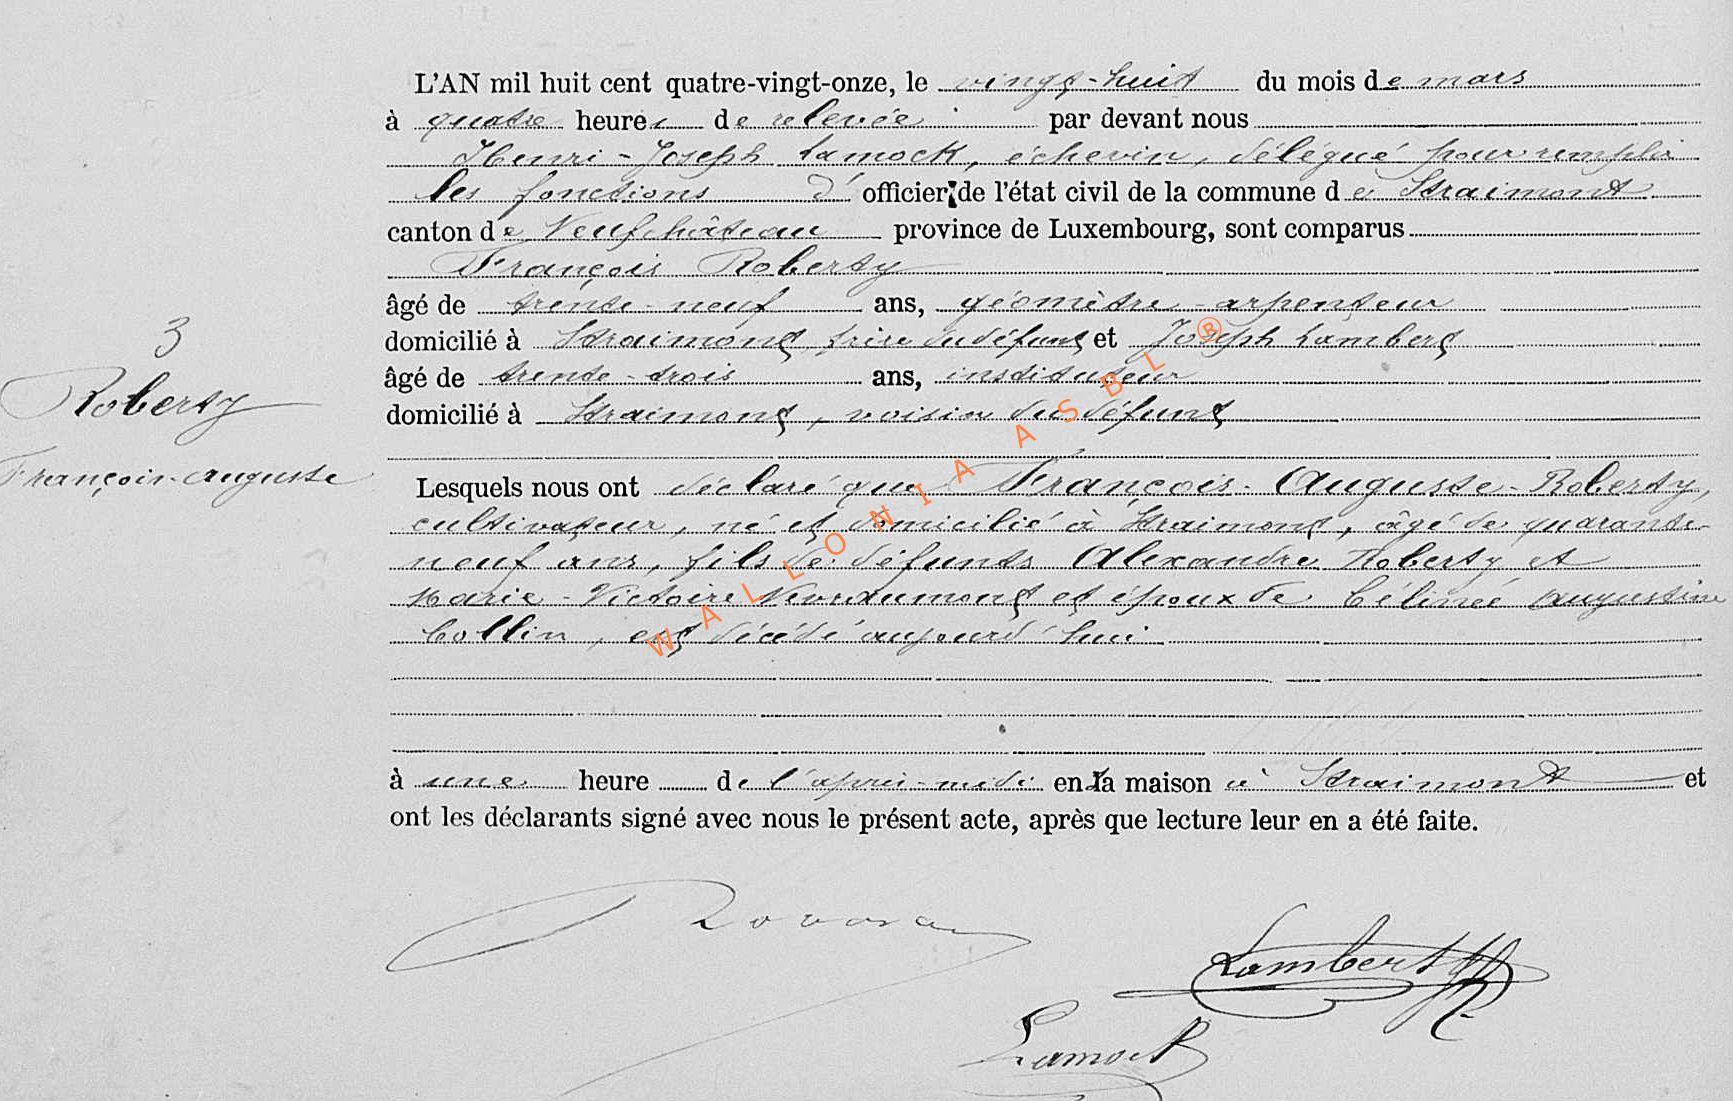 L'AN mil huit cent quatre-vingt-onze, le vingt-huit du mois de mars
à quatre heures de relevée par devant nous
Henri-Joseph Lamock, échevin, délégué pour remplir
les fonctions d' officier de l'état civil de la commune de Straimont
canton de Neufchâteau province de Luxembourg, sont comparus
François Roberty
âgé de trente-neuf ans, géomètre-arpenteur
domicilié à Straimont, frère du défunt et Joseph Lambert
âgé de trente-trois ans, instituteur
domicilié à Straimont, voisin du défunt
3
Roberty
François-Auguste
Lesquels nous ont déclaré que François-Auguste-Roberty,
cultivateur, né et domicilié à Straimont, âgé de quarante-
neuf ans, fils de défunts Alexandre Roberty et
Marie-Victoire et époux de Célinée Augustine
Collin, est décédé aujourd'hui
à une heure de l'après-midi en sa maison à Straimont et
ont les déclarants signé avec nous le présent acte, après que lecture leur en a été faite.
Lambert
Lamock
WALLONIA ASBL ®